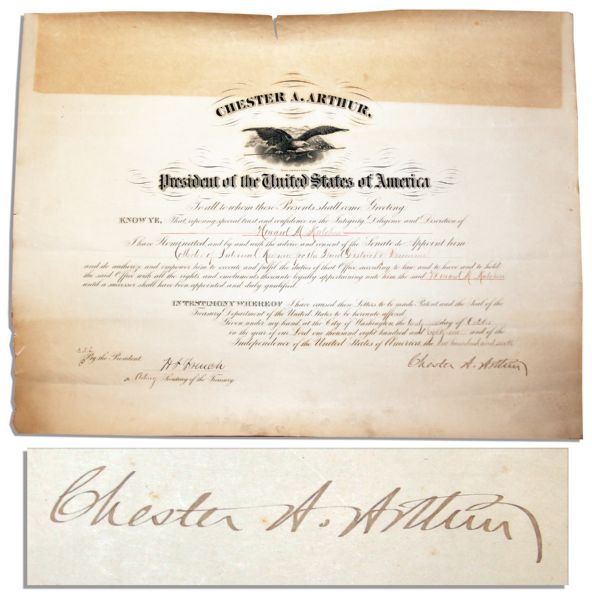 CHESTER A. ARTHUR,
President of the United States of America
To all to whom these Presents shall come Greeting
KNOW YE, That, reposing special trust and confidence in the Integrity, Diligence and Discretion of
I have Nominated, and by and with the advice and consent of the Senate do Appoint him
Collector of Internal Revenue for the District of
and do authorize and empower him to execute and fulfil the duties of that Office according to law and to have and to hold
the said Office with all the rights and emoluments thereunto legally appertaining unto him the said
until a successor shall have been appointed and duly qualified
IN TESTIMONY WHEREOF I have caused these Letters to be made Patent and the Seal of the
Treasury Department of the United States to be hereunto affixed
Given under my hand at the City of Washington, the day of October
in the year of our Lord one thousand eight hundred and eighty one and of the
Independence of the United States of America, the one hundred and sixth
By the President
H F French
Acting Secretary of the Treasury
Chester A. Arthur
Chester A. Arthur